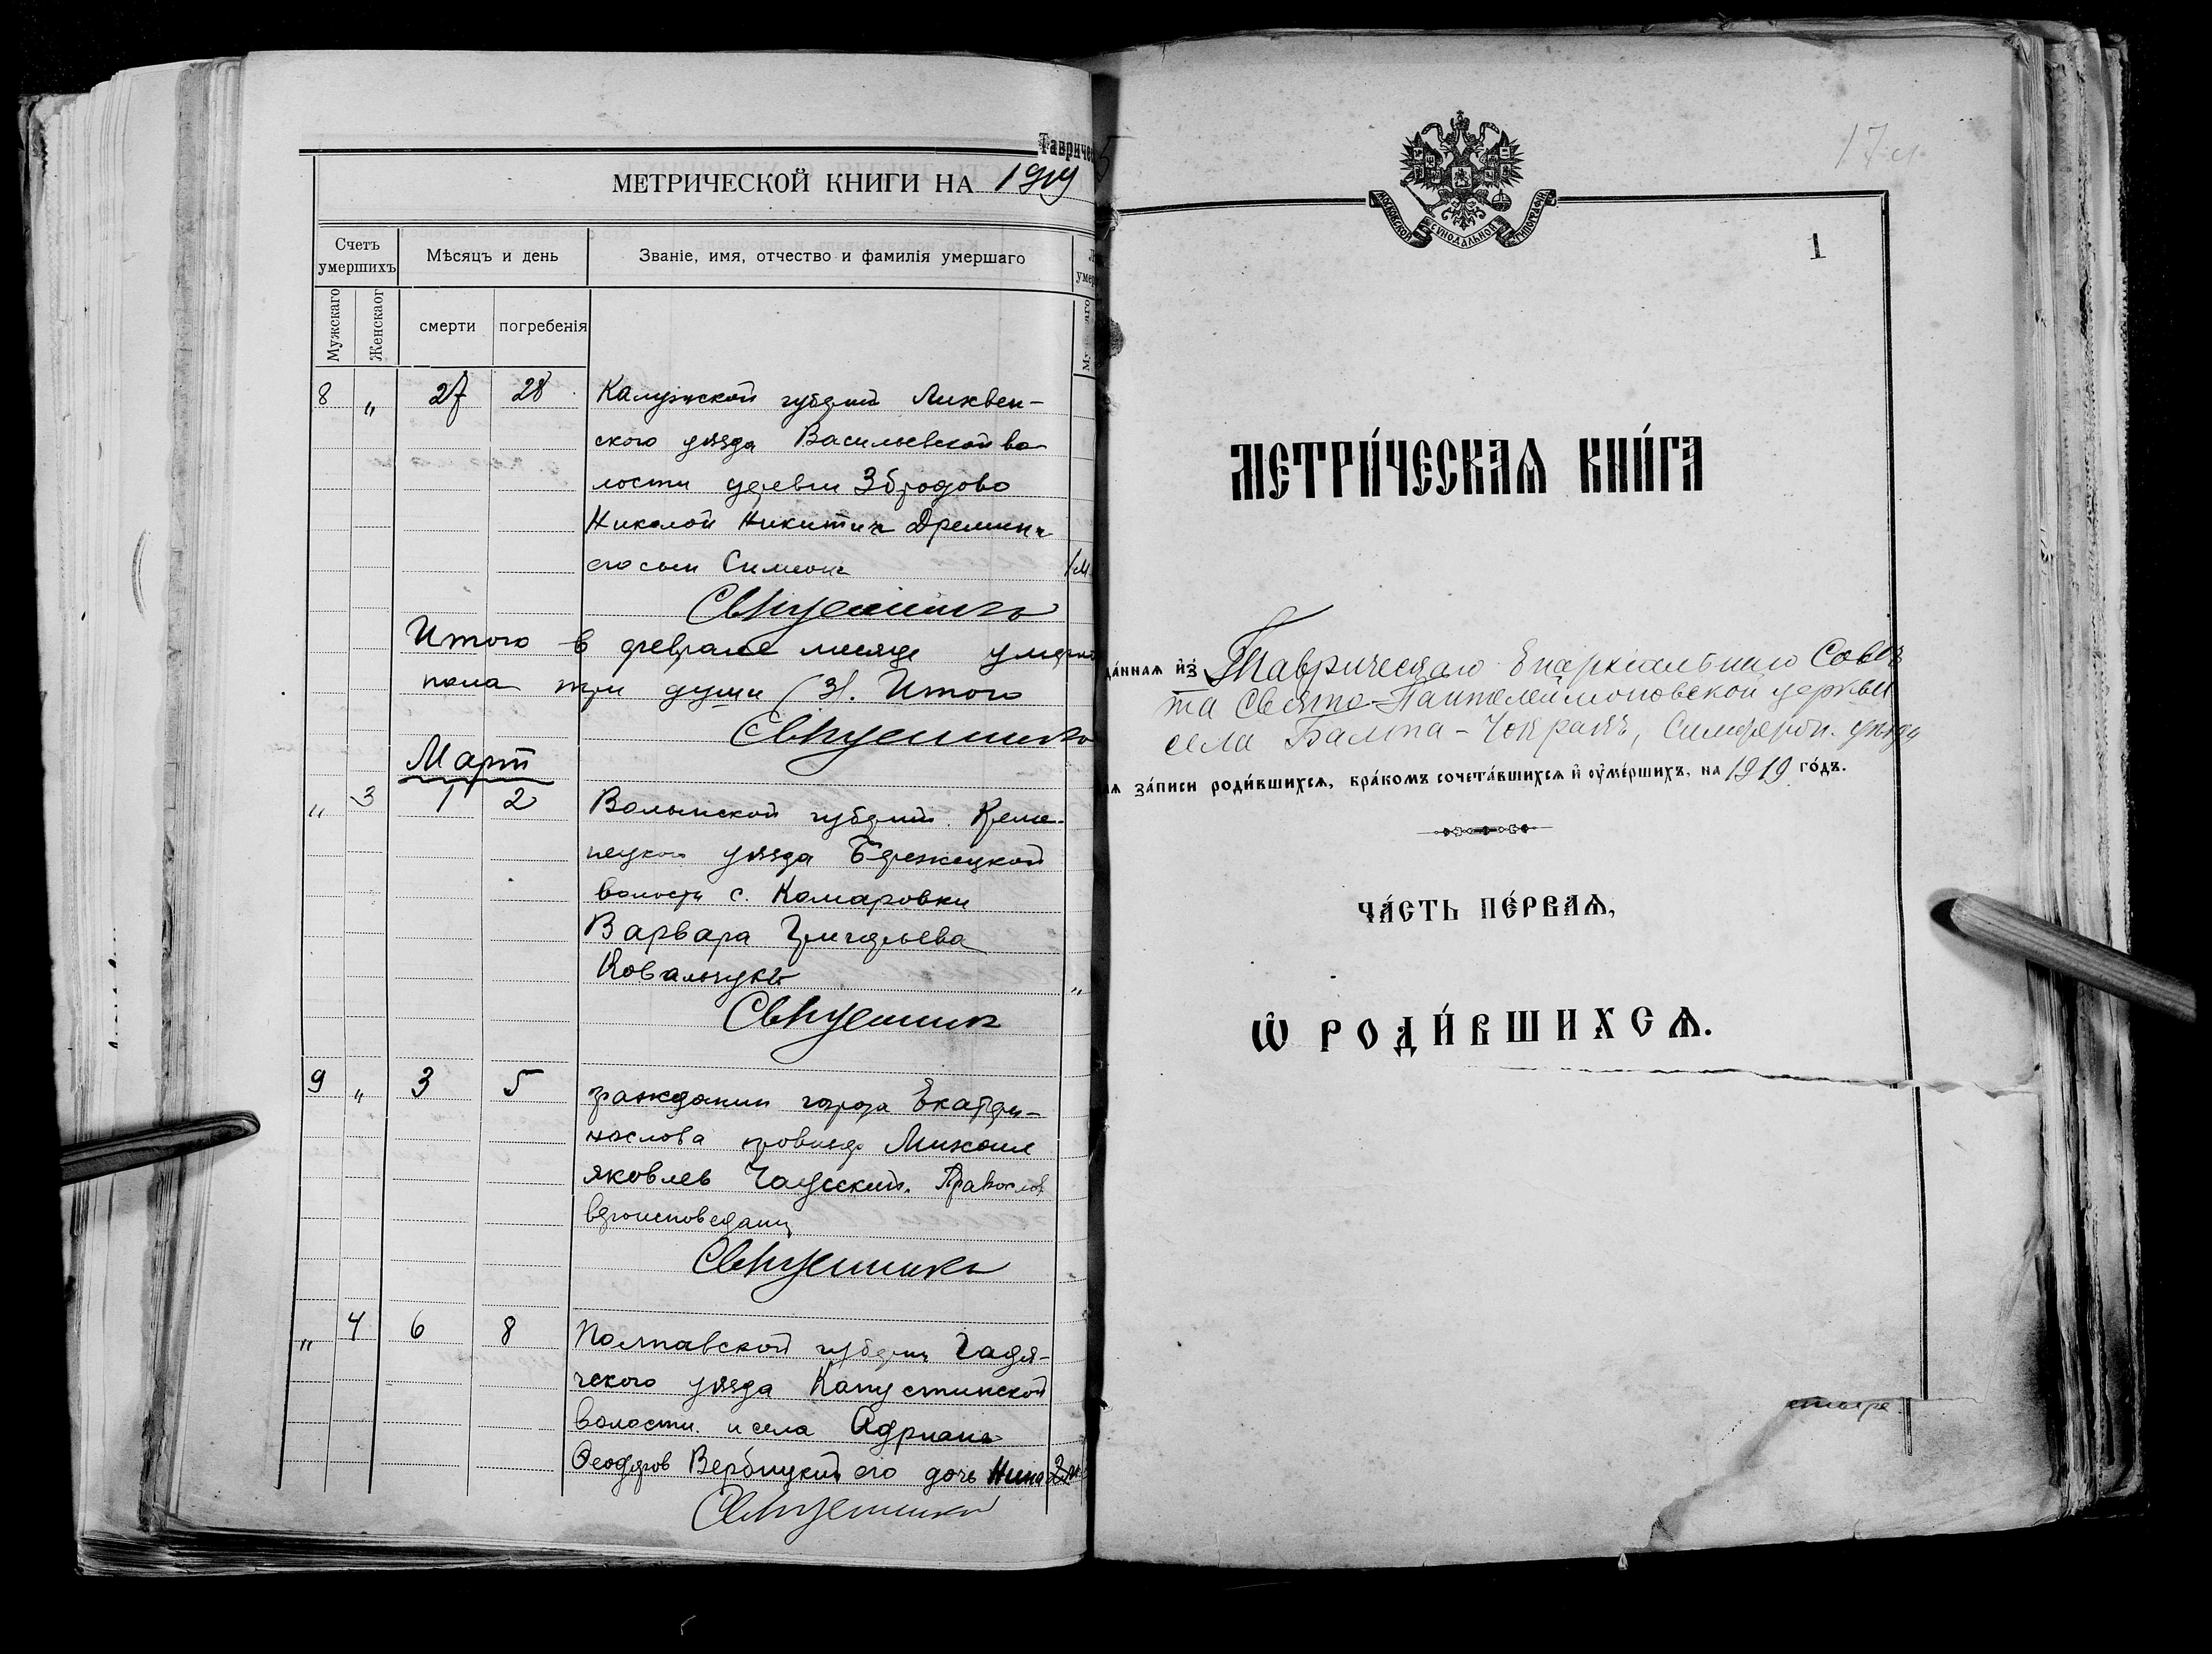 Тавриче
МЕТРИЧЕСКОЙ КНИГИ НА 1919
Счетъ умершихъ
Мѣсяцъ и день
Званіе, имя, отчество и фамилія умершаго
умер
Мужскаго
Женскаог
смерти
погребенія
8 " 27 28 Калужской губерніи Лихвен-
ского уѣзда Васильевской во
лости деревни Збродово
Николай Никитин Дремин
его сын Симеон
1 м
Итого в феврале месяце умерло
пола три души (3). Итого
Март
" 3 1 2 Волынской губерніи Креме-
нецкого уѣзда Бережецкой
волости с. Комаровки
Варвара Григорьева
Ковальчукъ
"
9 " 3 5 гражданин города Екатери-
нослова провизор Михаил
Яковлев Чаусский. Православ
вероисповедания
" 4 6 8 Полтавской губернии Гадя-
чского уѣзда Капустинской
волости и села Адриана
Феодоров Вербицкий его дочь Нина
17
МОСКОВСКОЙ СѴНОДАЛЬНОЙ ТИПОГРАФІИ
1
МЕТРИ́ЧЕСКАѦ КНИ́ГА
да́ннаѧ и҆з̾ Таврическаго Епархіальнаго Совѣ
та Свято-Пантелеймоновской церкви
села Балта-Чокракъ, Симфероп. уѣзда
лѧ за́писи роди́вшихсѧ, бра́комъ сочета́вшихсѧ и҆ ᲂу҆ме́ршихъ, на 1919 го́дъ.
ЧА́СТЬ ПЕ́РВАѦ,
Ѡ҆ РОДИ́ВШИХСѦ.